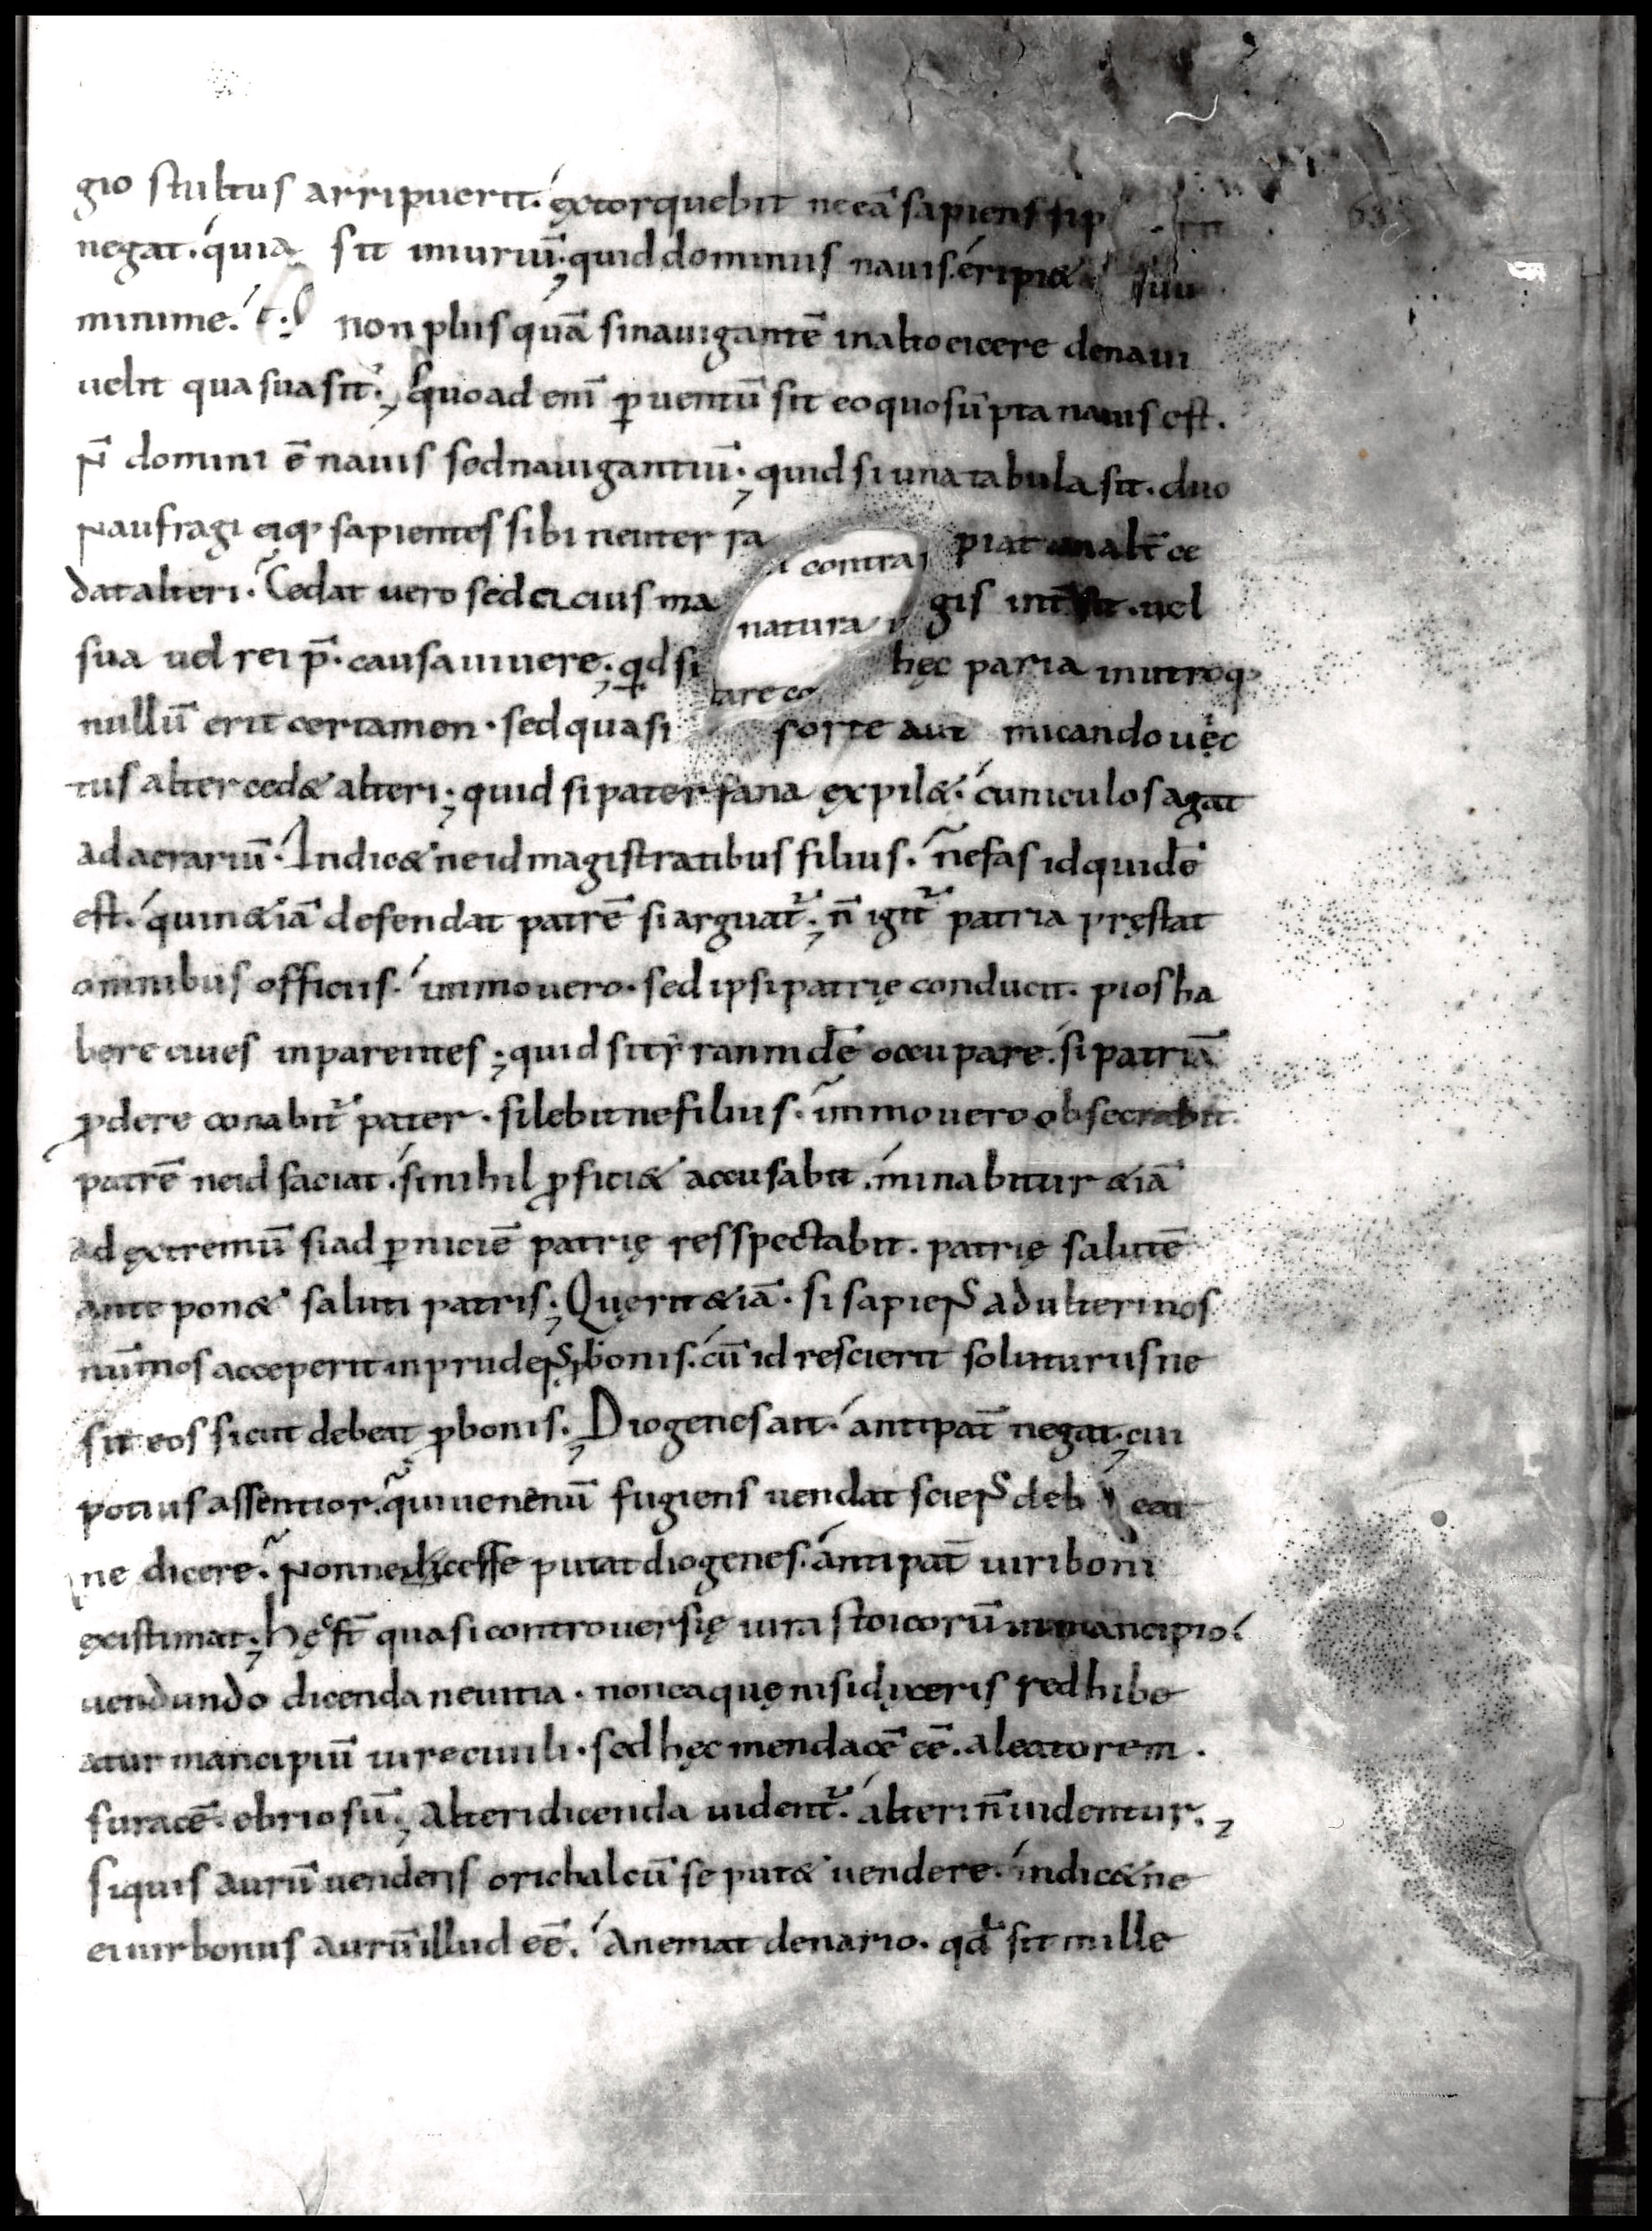 gio stultus arripuerit. extorquebit ne eā sapiens si p
negat. quia sit iniuriū; quid dominus nauis. eripi& suu
minime. non plus quā si nauigantē in alto eicere de naui
uelit qua sua sit; quoad eni̅ p̱uentū sit eo quo sūpta nauis est.
n̄ domini ē nauis sed nauigantiū; quid si una tabula sit. duo
naufragi eiq; sapientes sibi neuter ra piat an alt̄ ce
dat alteri. Cedat uero sed ei cuius ma gis int̄sit. uel
contra
natura
sua uel rei p̄. causa uiuere; qd si hęc paria in utroq;
tare co
nullū erit certamen. sed quasi sorte aut micando uęc
tus alter ced& alteri; quid si pater fana expil&. cuniculos agat
ad aerariū. Indic& ne id magistratibus filius. nefas id quidē
est. quin &iā defendat patrē si arguat̄; n̄ igit̄ patria pręstat
omnibus officiis. immo uero. sed ipsi patrię conducit. pios ha
bere ciues in parentes; quid si tyrannidē occupare. si patriā
ꝓdere conabit̄ pater. silebit ne filius. immo uero obsecrabit.
patrē ne id faciat. si nihil ꝓfici& accusabit. minabitur &iā
ad extremū si ad p̱niciē patrię res spectabit. patrię salutē
ante pon& saluti patris; Quęrit &iā. si sapiens adulterinos
nūmos acceperit inprudens ꝓ bonis. cū id rescierit soluturus ne
sit eos sicut debeat ꝓ bonis; Diogenes ait. antipat̄ negat; cui
potius assentior. qui uenenū fugiens uendat sciens deb eat
ne dicere. Non necesse putat diogenes. antipat̄ uiri boni
existimat; Hę st̄ quasi controuersię iura stoicorū in mancipio
uendundo dicenda ne uitia. non ea quę nisi dixeris redhibe
atur mancipiū iure ciuili. sed hęc mendacē eē. aleatorem.
furacē. ebriosū; Alteri dicenda uident̄. alteri n̄ uidentur;
Siquis aurū uendens orichalcū se put& uendere. indic& ne
ei uir bonus aurū illud eē. An emat denario. qd̄ sit mille